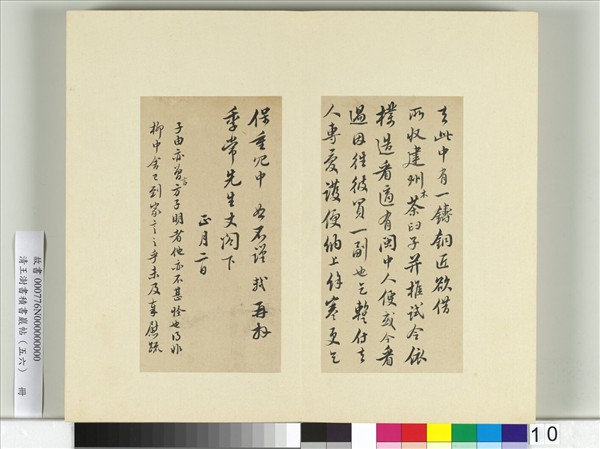 去此中有一鑄銅匠欲借
所收建州木茶臼子并椎試令依
樣造看適有閩中人便或令看
過因往彼買一副也乞暫付去
人專愛護便納上餘寒更乞
保重冗中恕不謹 軾再拜
季常先生丈閣下
正月二日
子由亦曾言方子明者他亦不甚怪也得非
柳中舍已到家言之乎未及奉慰疏
故書000776N000000000
清王澍書積書巖帖（五六） 冊
10